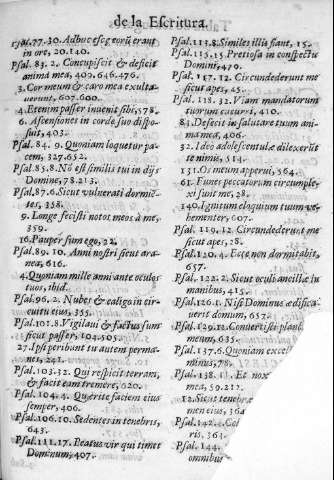 de la Escritura.
Psal.77.30. Adhuc escę eorũ erant
in ore, 20.140.
Psal. 83. 2. Concupiscit & deficit
anima mea, 409. 646. 476.
3. Cor meum & caro mea exulta
uerunt, 607. 600.
4. Etenim passer inuenit sibi, 578.
6. Ascensiones in corde suo dispo-
suit, 403.
Psal. 84. 9. Quoniam loquetur pa-
cem, 327. 652.
Psal. 85. 8. Nō est similis tui in dijs
Domine, 78. 213.
Psal. 87. 6. Sicut vulnerati dormiē-
tes, 358.
9. Longe fecisti notos meos à me,
359.
16. Pauper sum ego, 22.
Psal. 89. 10. Anni nostri sicut ara-
nea, 616.
4. Quoniam mille anni ante oculos
tuos, ibid.
Psal. 96. 2. Nubes & caligo in cir-
cuitu eius, 355.
Psal. 101. 8. Vigilaui & factus sum
sicut passer, 104. 505.
27. Ipsi peribunt tu autem perma-
nes, 241.
Psal. 103. 32. Qui respicit terram,
& facit eam tremere, 620.
Psal. 104. 4. Quęrite faciem eius
semper, 406.
Psal. 106. 10. Sedentes in tenebris,
643.
Psal. 111. 17. Beatus vir qui timet
Dominum, 407.
Psal. 113. 8. Similes illis fiant, 15.
Psal. 115. 15. Pretiosa in conspectu
Domini, 470.
Psal. 117. 12. Circundederunt me
sicut apes, 45.
Psal. 118. 32. Viam mandatorum
tuorum cucurri, 410.
83. Defecit in salutare tuum ani
ma mea, 406.
32. Ideo adolescentulæ dilexerūt
te nimis, 514.
131. Os meum aperui, 564.
61. Funes peccatorum circumple-
xi sunt me, 28.
140. Ignitum eloquium tuum ve-
hementer, 607.
Psal. 119. 12. Circundederunt me
sicut apes, 28.
Psal. 120. 4. Ecce non dormitabit,
657.
Psal. 122. 2. Sicut oculi ancillæ in
manibus, 415.
Psal. 126. 1. Nisi Dominus ædifica
uerit domum, 657.
Psal. 129. 12. Conuertisti planct
meum, 635.
Psal. 137. 6. Quoniam excel
minus, 78.
Psal. 138. 11. Et nox
mea, 59. 211.
12. Sicut tenebræ
men eius, 364
Psal. 142.
ris, 361.
Psal. 144.
omnibus